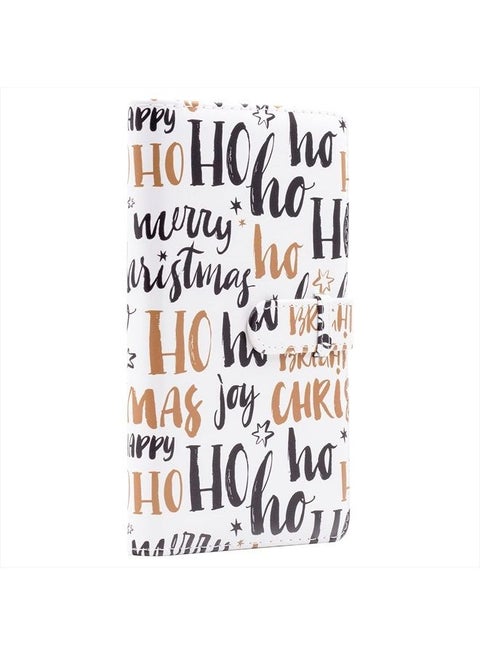 APPY HO HO ho
HO HO ho
merry ho HO
hristmas
HO ho BRIGHT
MAS joy CHRIS
HAPPY HO ho
HO HO ho
merry